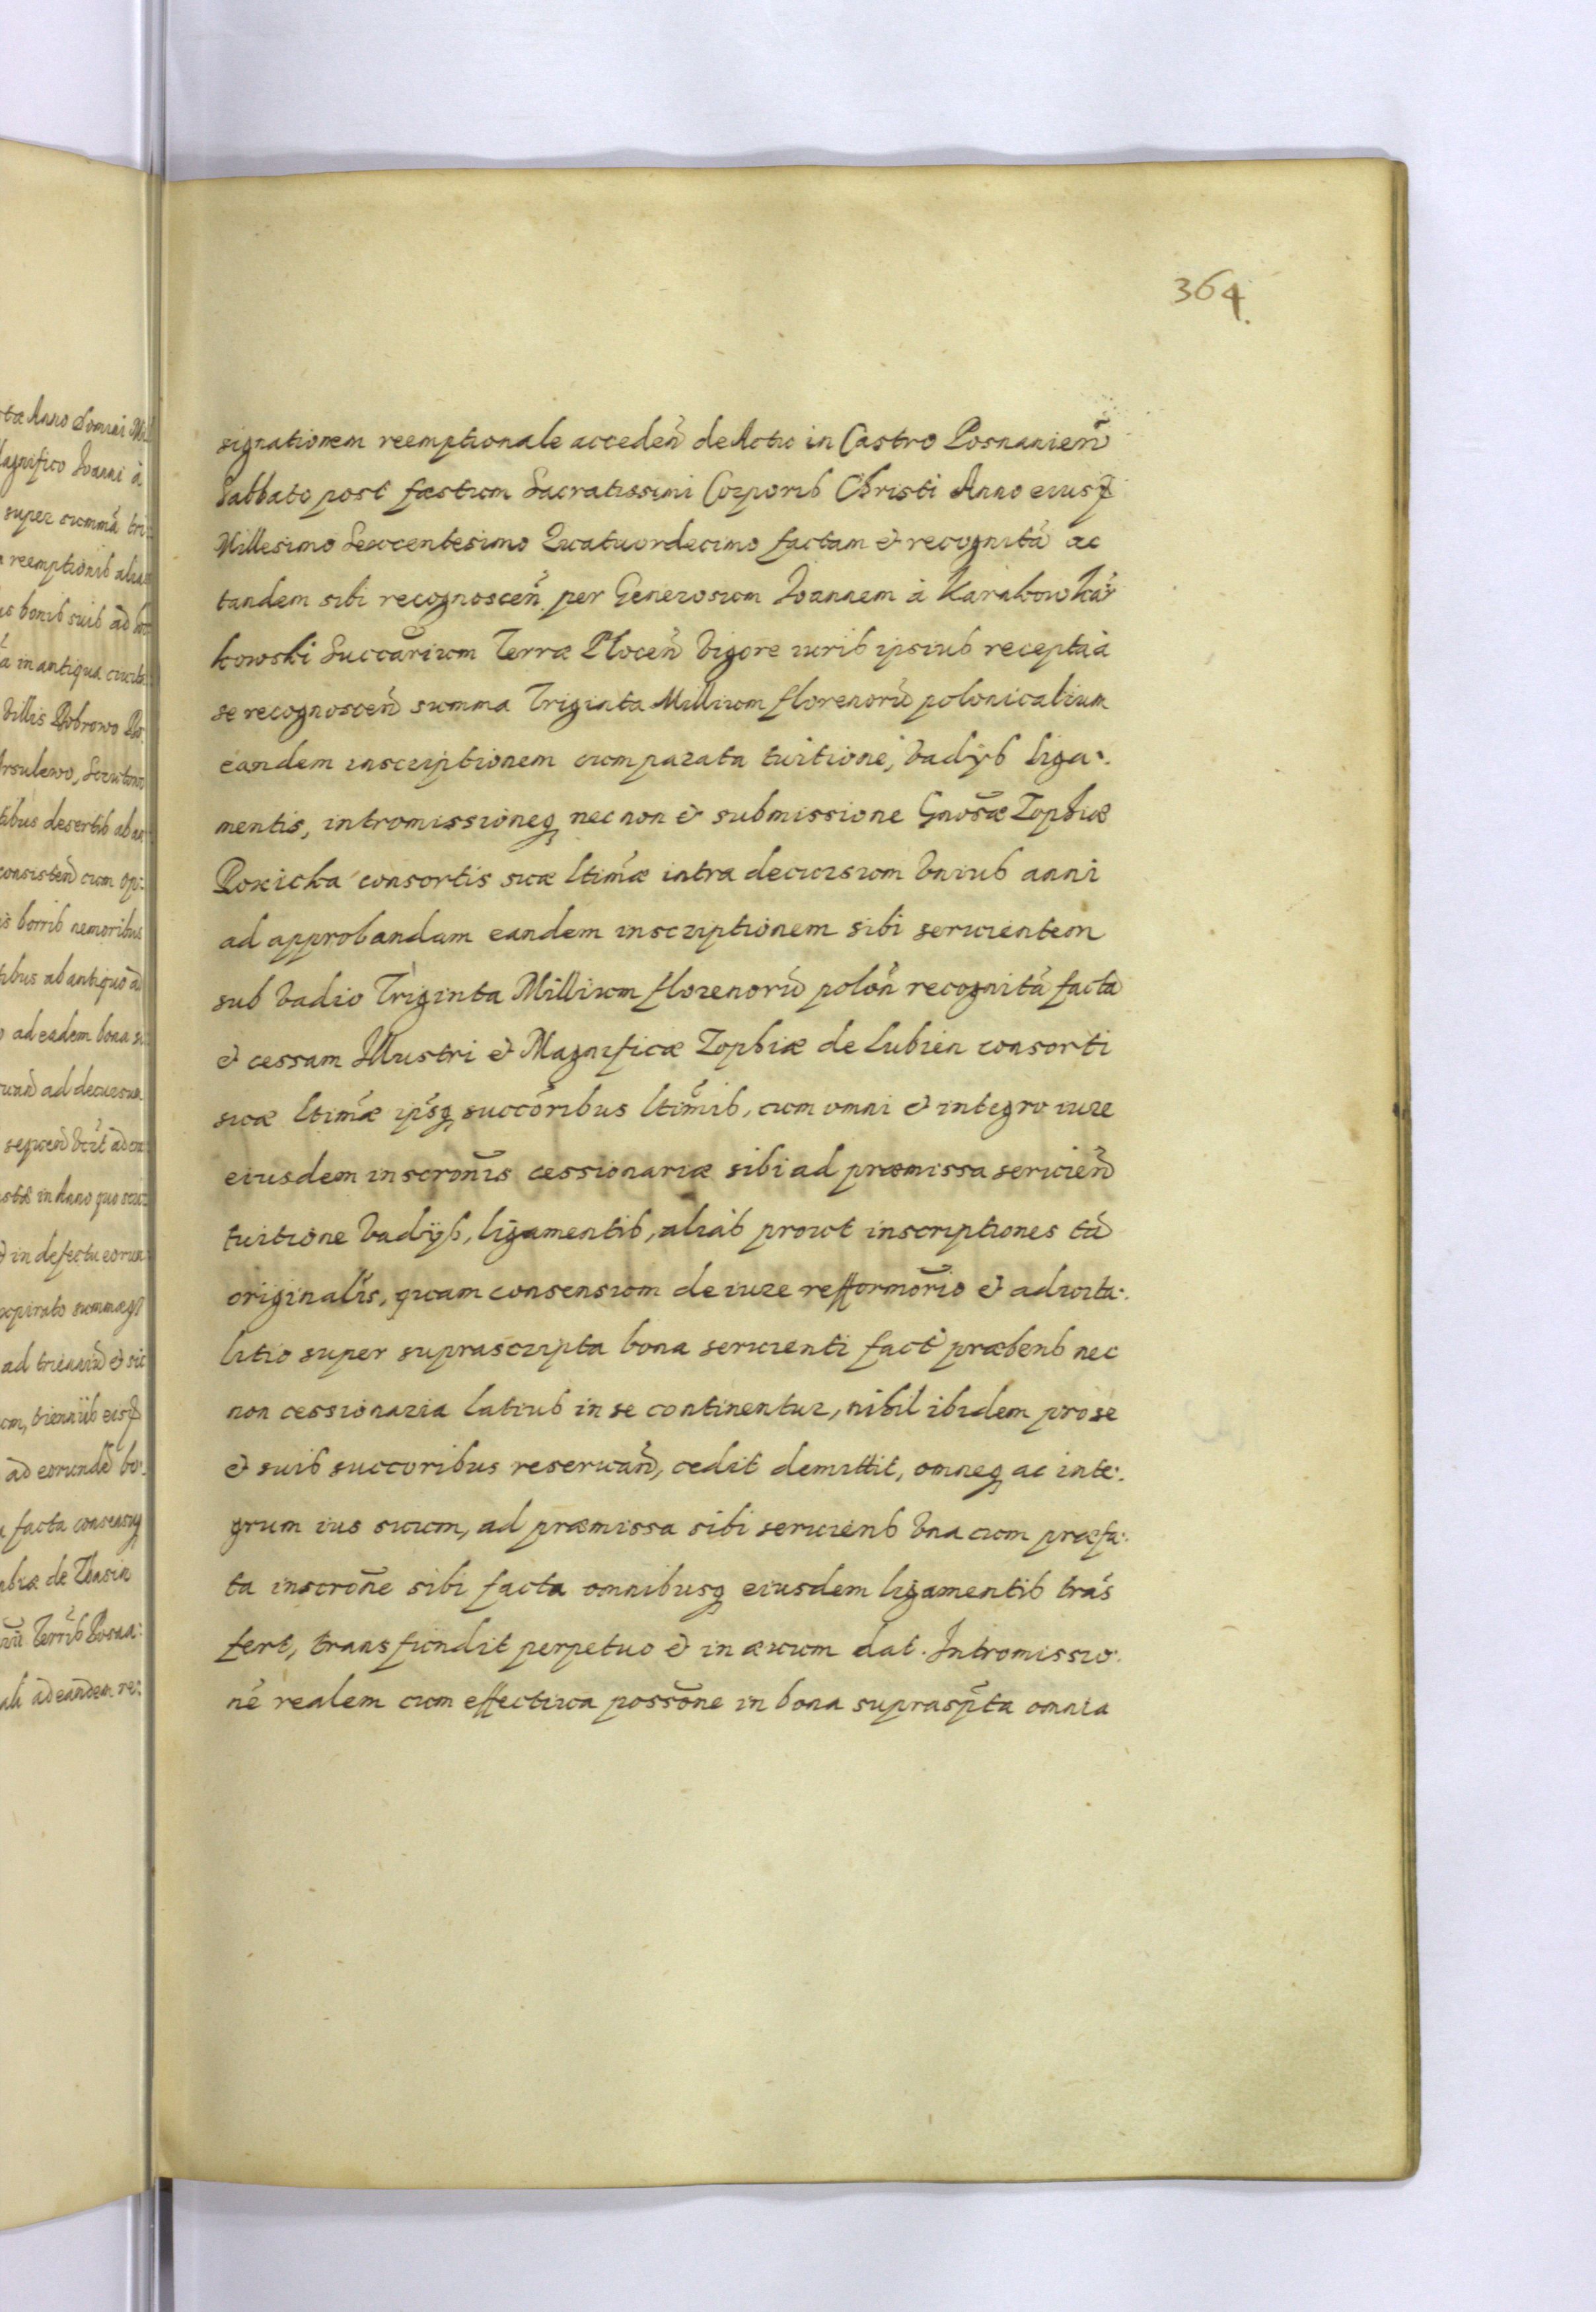 364.
signationem reemptionale acceden̄ de Actu in Castro Posnanien̄
Sabbato post fæstum Sacratissimi Corporis Christi Anno eiusd
Millesimo Sexcentesimo Quatuordecimo factam & recognitā ac
tandem sibi recognoscen̄ per Generosum Ioannem à
Succarium Terræ Plocen̄ Vigore iuris ipsius recepta à
se recognoscen̄ summa Triginta Millium florenorū polonicalium
eandem inscriptionem cum parata tuitione, Vadijs liga:
mentis, intromissioneq nec non & submissione Gnōsæ Zophiæ
consortis suæ ltimæ intra decursum Vnius anni
ad approbandam eandem inscriptionem sibi seruientem
sub Vadio Triginta Millium florenorū polon̄ recognitā facta
& cessam Illustri & Magnificæ Zophiæ de Lubien consorti
suæ ltimæ ipsq succōribus ltimis, cum omni & integro iure
eiusdem inscronis cessionariæ sibi ad præmissa seruien̄
tuitione Vadijs, ligamentis, alias prout inscriptiones tū
originalis, quam consensum de iure refformōrio & aduita:
litio super suprascripta bona seruienti fact præbens nec
non cessionaria latius in se continentur, nihil ibidem pro se
& suis succoribus reseruan̄, cedit demittit, omneq ac inte:
grum ius suum, ad præmissa sibi seruiens Vna cum præfa:
ta inscrōne sibi facta omnibusq eiusdem ligamentis trās
fert, transfundit perpetuo & in æuum dat. Intromissio:
nē realem cum effectiua possōne in bona suprasp̄ta omnia